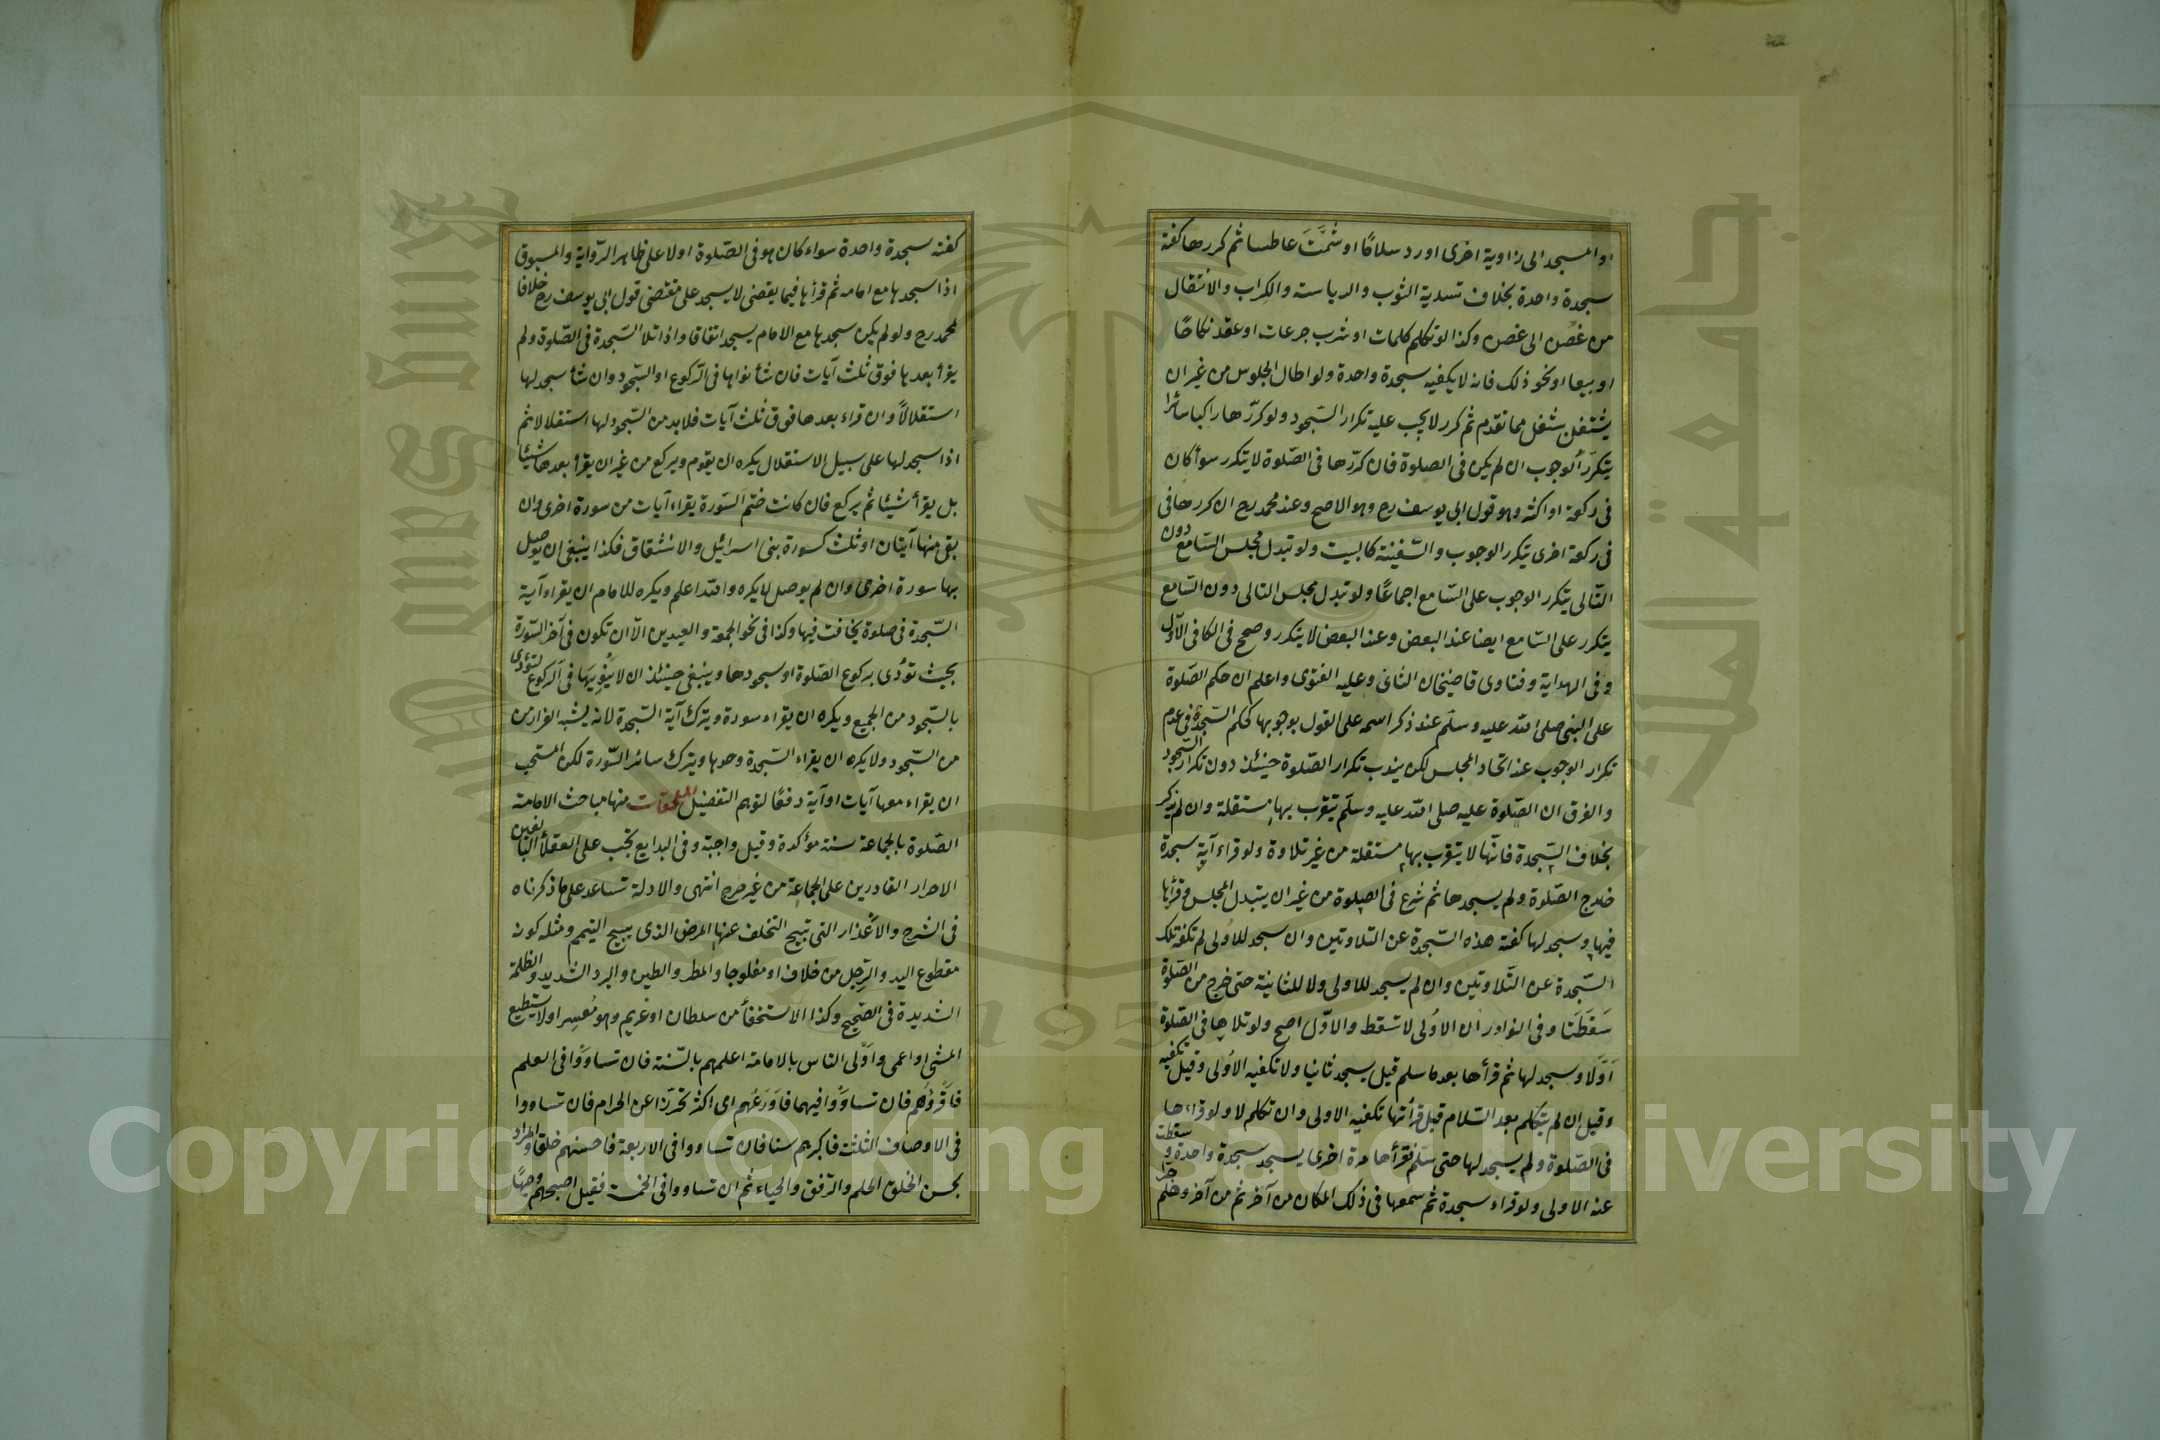 او المسجد الى زاوية اخرى اورد سلامًا او شمَّتَ عاطسا ثم كررها كفته
سجدة واحدة بخلاف تسدية الثوب والدياسة والكراب والانتقال
من غصن الى غصن وكذا لو تكلم كلمات او شرب جرعات او عقد نكاحًا
او بيعا او نحو ذلك فانه لا يكفيه سجدة واحدة ولو اطال الجلوس من غير ان
يشتغل بشغل مما تقدم ثم كرر لا يجب عليه تكرار السّجود ولو كرّرها راكبا سائرا
يتكرّر الوجوب ان لم يكن فى الصلوة فان كرّرها فى الصّلوة لا يتكرر سوأ كان
فى ركعة او اكثر وهو قول ابى يوسف رح وهو الاصح وعند محمد رح ان كررها فى
فى ركعة اخرى يتكرر الوجوب والسّفينة كالبيت ولو تبدل مجلس السّامع دون
التّالى يتكرر الوجوب على السّامع اجماعًا ولو تبدل مجلس التالى دون السّامع
يتكرر على السّامع ايضا عند البعض وعند البعض لا يتكرر وصحح فى الكافى الاّول
وفى الهداية وفتاوى قاضيخان الثانى وعليه الفتوى واعلم ان حكم الصّلوة
على النبى صلى الله عليه وسلّم عند ذكر اسمه على القول بوجوبها كحكم السّجدة فى عدم
تكرار الوجوب عند اتحاد المجلس لكن يندب تكرار الصّلوة حينئذ دون تكرار السّجود
والفرق ان الصّلوة عليه صلى الله عليه وسلّم يتقرب بها مستقلة وان لم يذكر
بخلاف السّجدة فانّها لا يتقرب بها مستقلة من غير تلاوة ولو قراء آية سجدة
خارج الصّلوة ولم يسجدها ثم شرع فى الصلوة من غير ان يتبدل المجلس وقرأها
فيها وسجد لها كفته هذه السّجدة عن التلاوتين وان سجد للأولى لم تكفه تلك
السّجدة عن التّلاوتين وان لم يسجد للاولى ولا للثانية حتى خرج من الصّلوة
سَقَطَتا وفى النوادر ان الاُولى لا تسقط والاوّل اصح ولو تلاها فى الصّلوة
اَوَّلا وسجد لها ثم قرأها بعد ما سلم قيل يسجد ثانيا ولا تكفيه الاُولى وقيل تكفيه
وقيل ان لم يتكلم بعد السّلام قبل قرأتها تكفيه الاولى وان تكلم لا ولو قراءها
فى الصّلوة ولم يسجد لها حتى سلّم فقرأها مرة اخرى يسجد سجدة واحدة و سقطت
عنه الاولى ولو قراء سجدة ثم سمعها فى ذلك المكان من آخر ثم من آخر وهلم جرّا
كفته سجدة واحدة سواء كان هو فى الصّلوة اولا على ظاهر الرّواية والمسبوق
اذا سجدها مع امامه ثم قرأها فيما يقضى لا يسجد على مقتضى قول ابى يوسف رح خلافا
لمحمد رح ولو لم يكن سجدها مع الامام يسجد اتفاقا واذا تلا السّجدة فى الصّلوة ولم
يقرأ بعدها فوق ثلث آيات فان شأ نواها فى الرّكوع او السّجود وان شأ سجد لها
استقلالاً وان قراء بعدها فوق ثلث آيات فلابد من السّجود لها استقلالا ثم
اذا سجد لها على سبيل الاستقلال يكره ان يقوم ويركع من غير ان يقرأ بعدها شيئا
بل يقرأ شيئا ثم يركع فان كانت ختم السّورة يقراء آيات من سورة اخرى وان
بقى منها آيتان او ثلث كسورة بنى اسرائيل والانشقاق فكذا ينبغى ان يوصل
بها سورة اخرى وان لم يوصل لا يكره والله اعلم ويكره للامام ان يقراء آية
السّجدة فى صلوة يخافت فيها وكذا فى نحو الجمعة والعيدين الاّ ان تكون فى آخر السّورة
بحيث تؤدى بركوع الصّلوة او سجودها وينبغى حينئذ ان لا ينويها فى الرّكوع لتؤدى
بالسّجود من الجميع ويكره ان يقراء سورة ويترك آية السّجدة لانه يشبه الفرار من
من السّجود ولا يكره ان يقراء السّجدة وحدها ويترك سائر السّورة لكن المستحب
ان يقراء معها آيات او آية دفعًا لتوهم التفضيل الملحقات منها مباحث الامامة
الصّلوة بالجماعة سنة مؤكدة وقيل واجبة وفى البدايع تجب على العقلأ البالغين
الاحرار القادرين على الجماعة من غير حرج انتهى والادلة تساعد على ما ذكرناه
فى الشرح والاَعْذار التى تبيح التخلف عنها المرض الذى يبيح التيمم ومثله كونه
مقطوع اليد والرِّجل من خلاف او مفلوجا والمطر والطين والبرد الشديد والظلمة
الشديدة فى الصّحيح وكذا الاستخفأ من سلطان او غريم وهو مُعسِر اولا يستطيع
المشى او اعمى واَوْلى الناس بالامامة اعلمهم بالسّنة فان تساوَوْا فى العلم
فاَقرؤهم فان تساوَوْا فيهما فاَوْرَعُهم اى اكثر تحرّزا عن الحرام فان تساووا
فى الاوصاف الثلثة فاكبرهم سنا فان تساووا فى الاربعة فاحسنهم خلقا والمراد
بحسن الخلق الحلم والرّفق والحياء ثم ان تساووا فى الخمسة فقيل اصبحهم وجهًا
Copyright © King Saud University